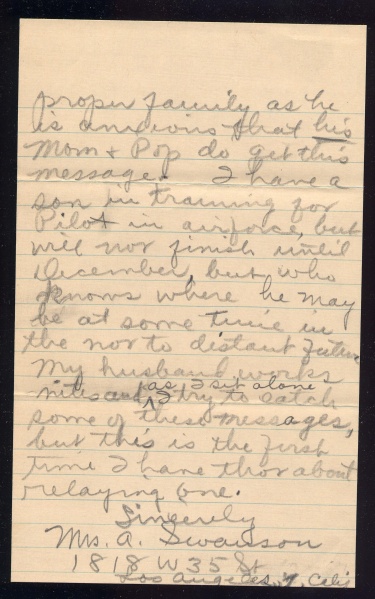 proper family as he
is anxious that his
Mom + Pop do get this
message. I have a
son in training for
Pilot in airforce, but
will not finish until
December, but, who
knows where he may
be at some time in
the not to distant future
My husband works
nites and as I sit alone
I try to catch
some of these messages,
but this is the first
time I have thot about
relaying one.
Sincerely
Mrs. A. Swanson
1818 W 35 St
Los Angeles, Calif